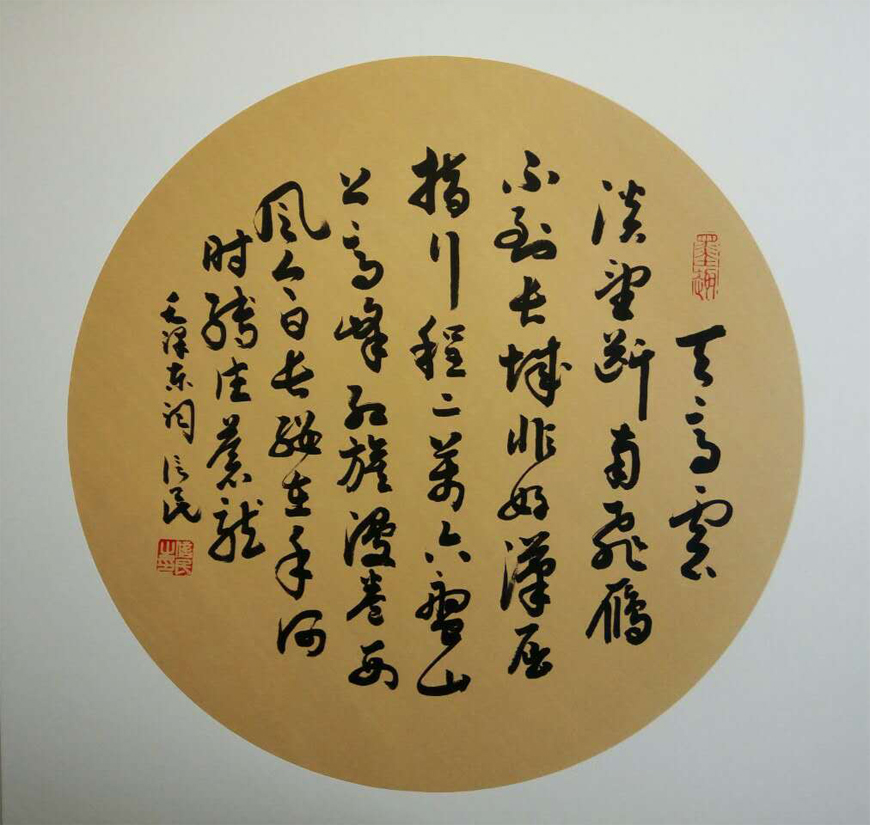 天高雲
淡望断南飛雁
不到长城非好漢屈
指行程二萬六盤山
上高峰红旗漫卷西
风今日长缨在手何
时缚住蒼龍
毛泽东词 信民
信民之印